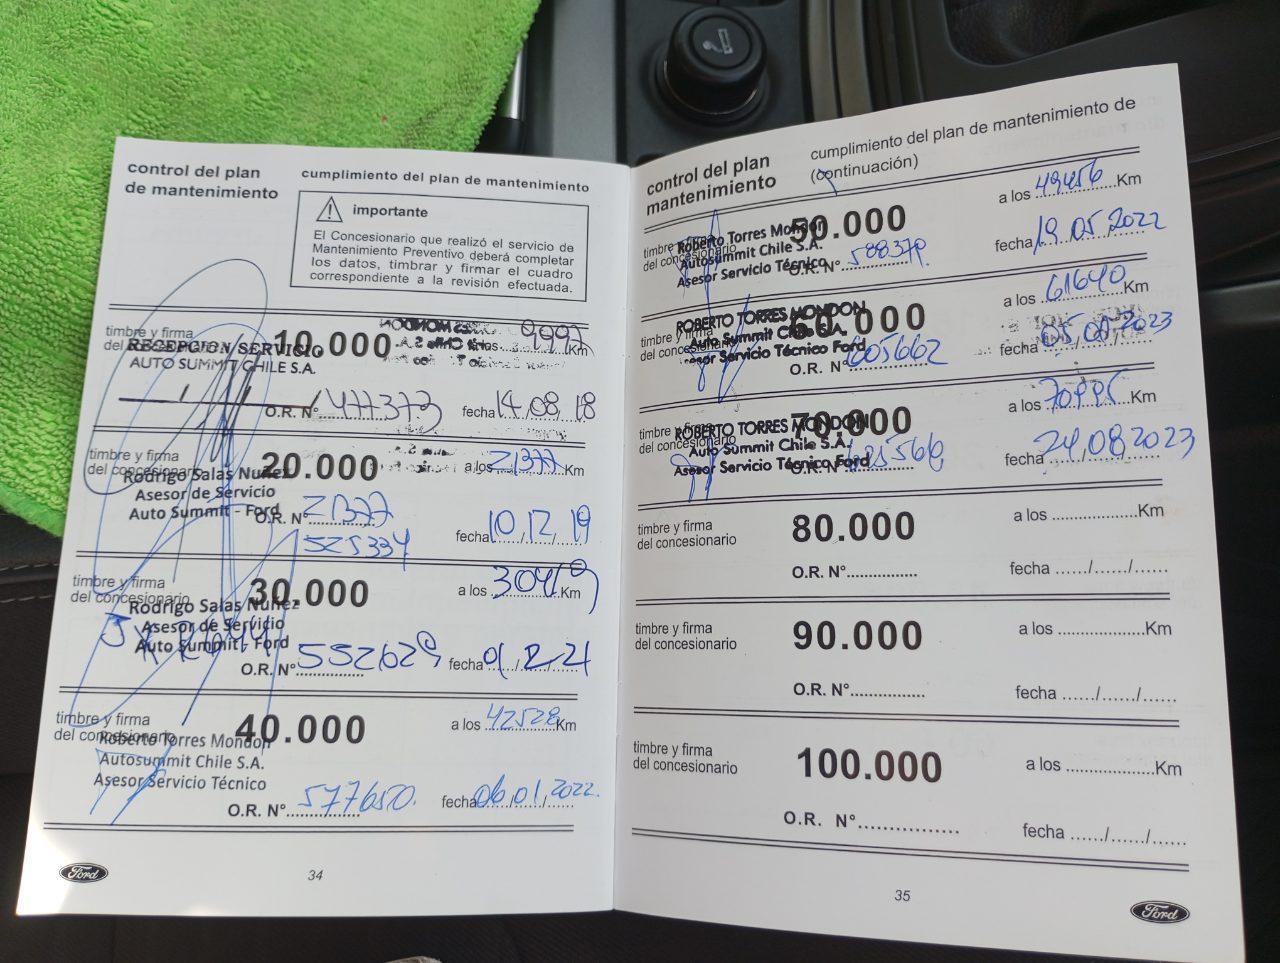 control del plan
de mantenimiento
cumplimiento del plan de mantenimiento
importante
El Concesionario que realizó el servicio de
Mantenimiento Preventivo deberá completar
los datos, timbrar y firmar el cuadro
correspondiente a la revisión efectuada.
timbre y firma
del concesionario
10.000
a los 9997 Km
RECEPCION SERVICIO
AUTO SUMMIT CHILE S.A.
O.R. N° 477373 fecha 14/08/18
timbre y firma
del concesionario
20.000
a los 21377 Km
Rodrigo Salas Nuñez
Asesor de Servicio
Auto Summit - Ford
O.R. N° 21377
525334
fecha 10/12/19
timbre y firma
del concesionario
30.000
a los Km
Rodrigo Salas Nuñez
Asesor de Servicio
Auto Summit - Ford
O.R. N° 552629 fecha 01/12/21
timbre y firma
del concesionario
40.000
a los 42528 Km
Roberto Torres Mondon
Autosummit Chile S.A.
Asesor Servicio Técnico
O.R. N° 577650. fecha 06/01/2022.
Ford
34
control del plan
mantenimiento
cumplimiento del plan de mantenimiento de
(continuación)
timbre y firma
del concesionario
50.000
a los 49456 Km
Roberto Torres Mondon
Autosummit Chile S.A.
Asesor Servicio Técnico
O.R. N° 588379. fecha 19/05/2022
timbre y firma
del concesionario
60.000
a los 61640 Km
ROBERTO TORRES MONDON
Auto Summit Chile S.A.
Asesor Servicio Técnico Ford
O.R. N° 605662 fecha 05/2023
timbre y firma
del concesionario
70.000
a los 70995 Km
ROBERTO TORRES MONDON
Auto Summit Chile S.A.
Asesor Servicio Técnico Ford
O.R. N° fecha 24/08/2023
timbre y firma
del concesionario
80.000
a los ................... Km
O.R. N°................ fecha ....../....../......
timbre y firma
del concesionario
90.000
a los ................... Km
O.R. N°................ fecha ....../....../......
timbre y firma
del concesionario
100.000
a los ................... Km
O.R. N°................ fecha ....../....../......
35
Ford